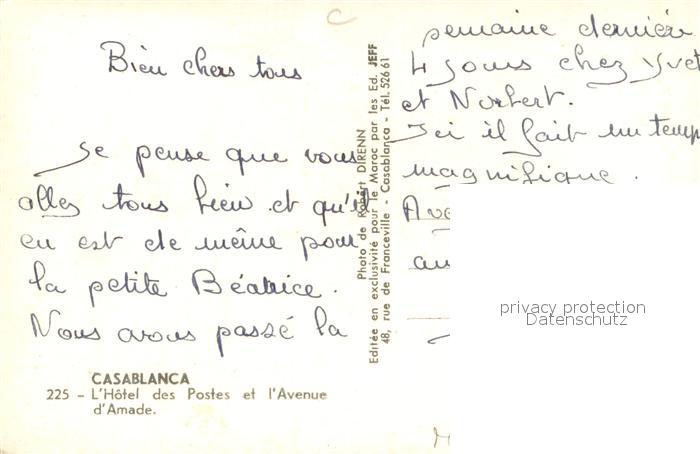 Bien chers tous
Je pense que vous
allez tous bien et qu'il
en est de même pour
la petite Béatrice.
Nous avons passé la
semaine dernière
4 jours chez Yvet
et Norbert.
Ici il fait un temp
magnifique.
Ave
au
CASABLANCA
225 - L'Hôtel des Postes et l'Avenue
d'Amade.
Photo de Robert DIRENN
Editée en exclusivité pour le Maroc par les Ed. JEFF
48, rue de Franceville - Casablanca - Tél. 526 61
privacy protection
Datenschutz